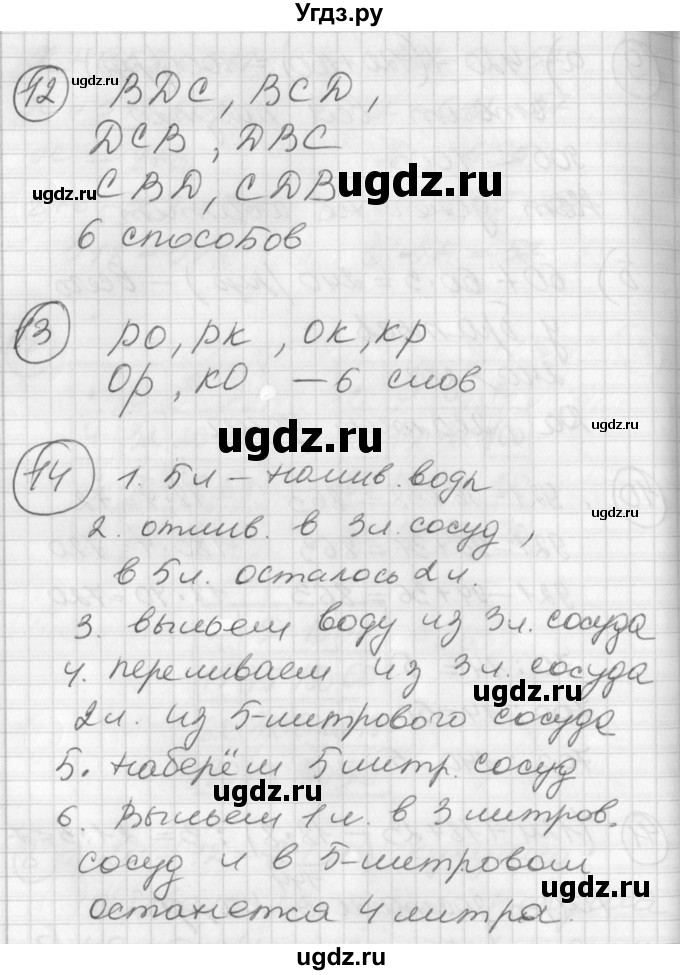 Угдз.ру
12 ВDС, ВСD,
DСВ, DВС
СВD, СDВ
6 способов
13 ро, рк, ок, кр
Ор, кО — 6 слов
14 1. 5л – налив. воды
2. отлив. в 3л. сосуд,
в 5л. осталось 2л.
3. выльем воду из 3л. сосуда
4. переливаем из 3л. сосуда
2л. из 5-литрового сосуда
5. наберём 5литр. сосуд
6. Выльем 1л. в 3литров.
сосуд и в 5-литровом
останется 4 литра.
ugdz.ru
ugdz.ru
ugdz.ru
ugdz.ru
ugdz.ru
ugdz.ru
ugdz.ru
ugdz.ru
ugdz.ru
ugdz.ru
ugdz.ru
ugdz.ru